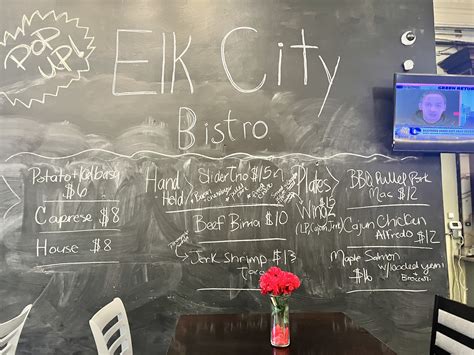 POP
UP!
Elk City
Bistro
Potato+Kielbasa
$6
Caprese $8
House $8
Hand
Held
Slider Trio $15
Beef Birria $10
Jerk Shrimp $13
Plates
$15
Wingz
BBQ Pulled Pork
Mac $12
Cajun Chicken
Alfredo $12
Maple Salmon
$16 w/loaded
+